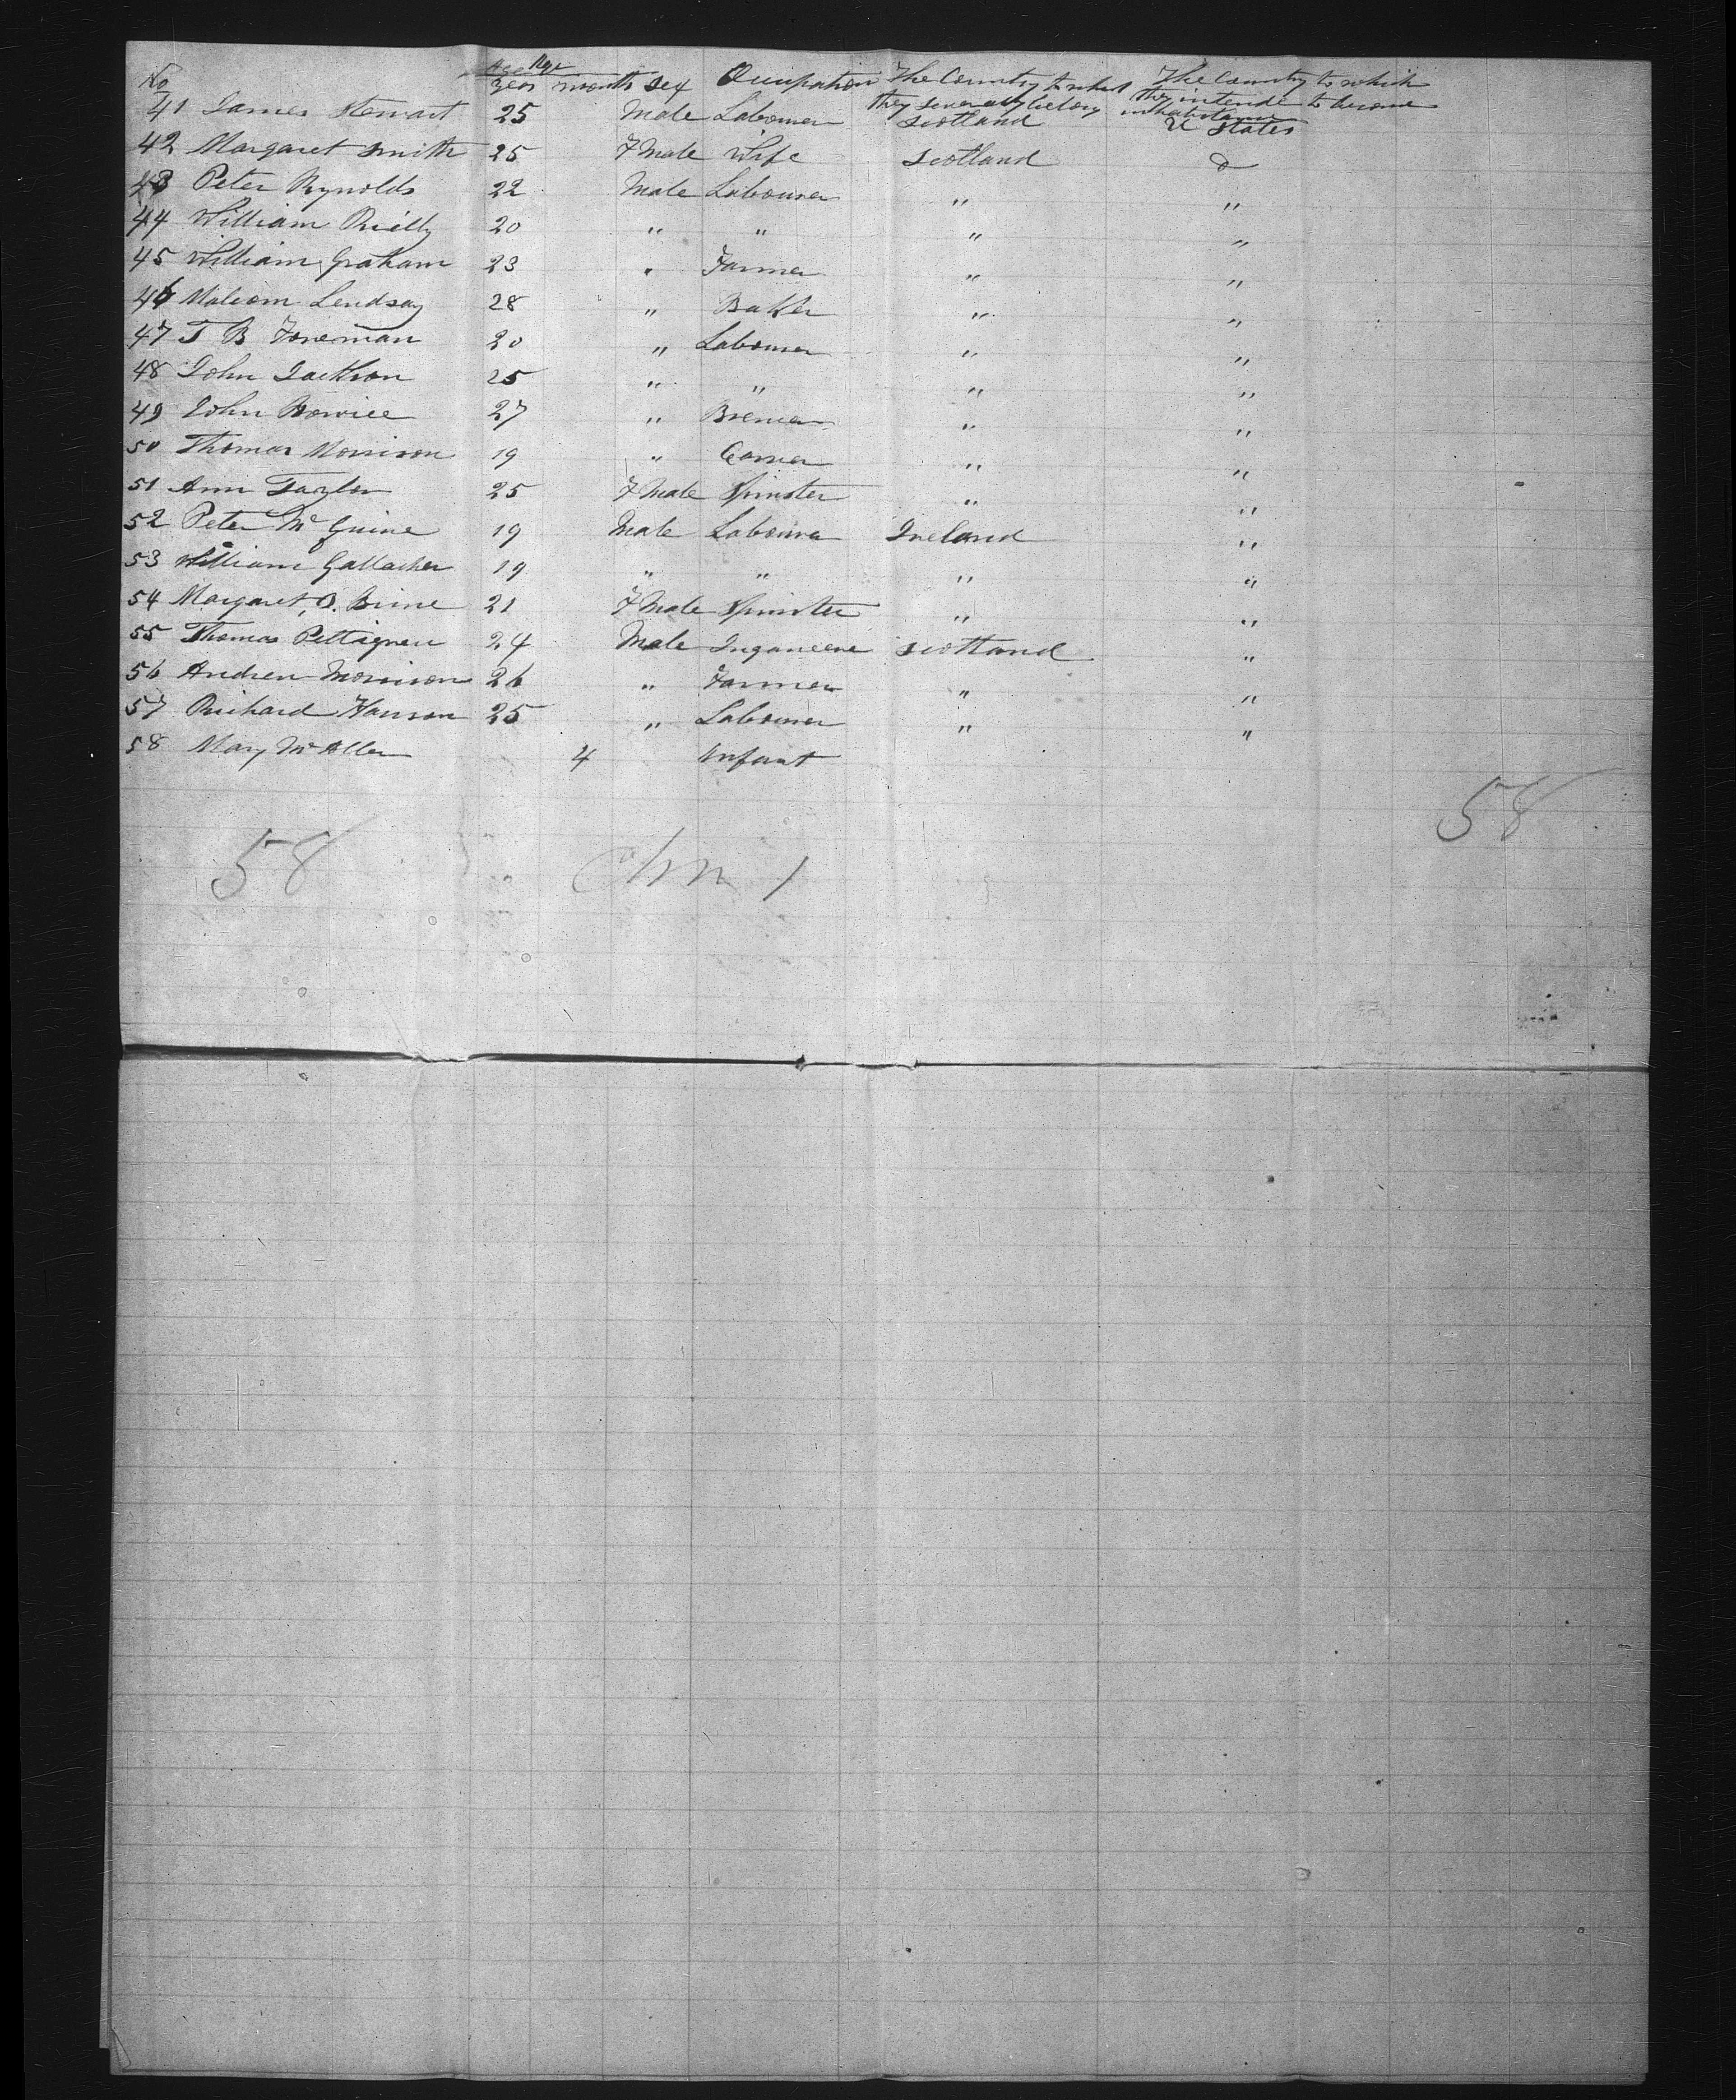 No Age Age The Country to which The Country to which
Year month Sex Occupation they severally belong they intende to become inhabitance
41 James Stewart 25 Male Labourer Scotland U States
42 Margaret Smith 25 F Male Wife Scotland do
43 Peter Rynolds 22 Male Labourer " "
44 William Rielly 20 " " " "
45 William Graham 23 " Farmer " "
46 Malcom Lendsay 28 " Baker " "
47 T B Foreman 20 " Labourer " "
48 John Jackson 25 " " " "
49 John Bowiee 27 " " "
50 Thomas Morrison 19 " " "
51 Ann Taylor 25 F Male Spinster " "
52 Peter McGuine 19 Male Labourer Ireland "
53 William Gallacher 19 " " " "
54 Margaret O. Birne 21 F Male Spinster " "
55 Thomas Pettigrew 24 Male Inganeere Scotland "
56 Andrew Morrison 26 " Farmer " "
57 Richard Hanson 25 " Labourer " "
58 Mary McAller 4 Infant
58
58